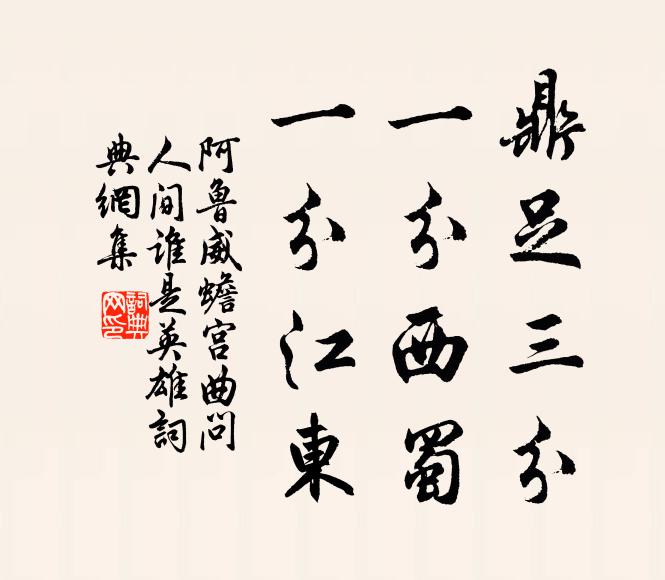 鼎足三分
一分西蜀
一分江東
阿魯威蟾宮曲問
人间谁是英雄詞
典網集
詞典
网印